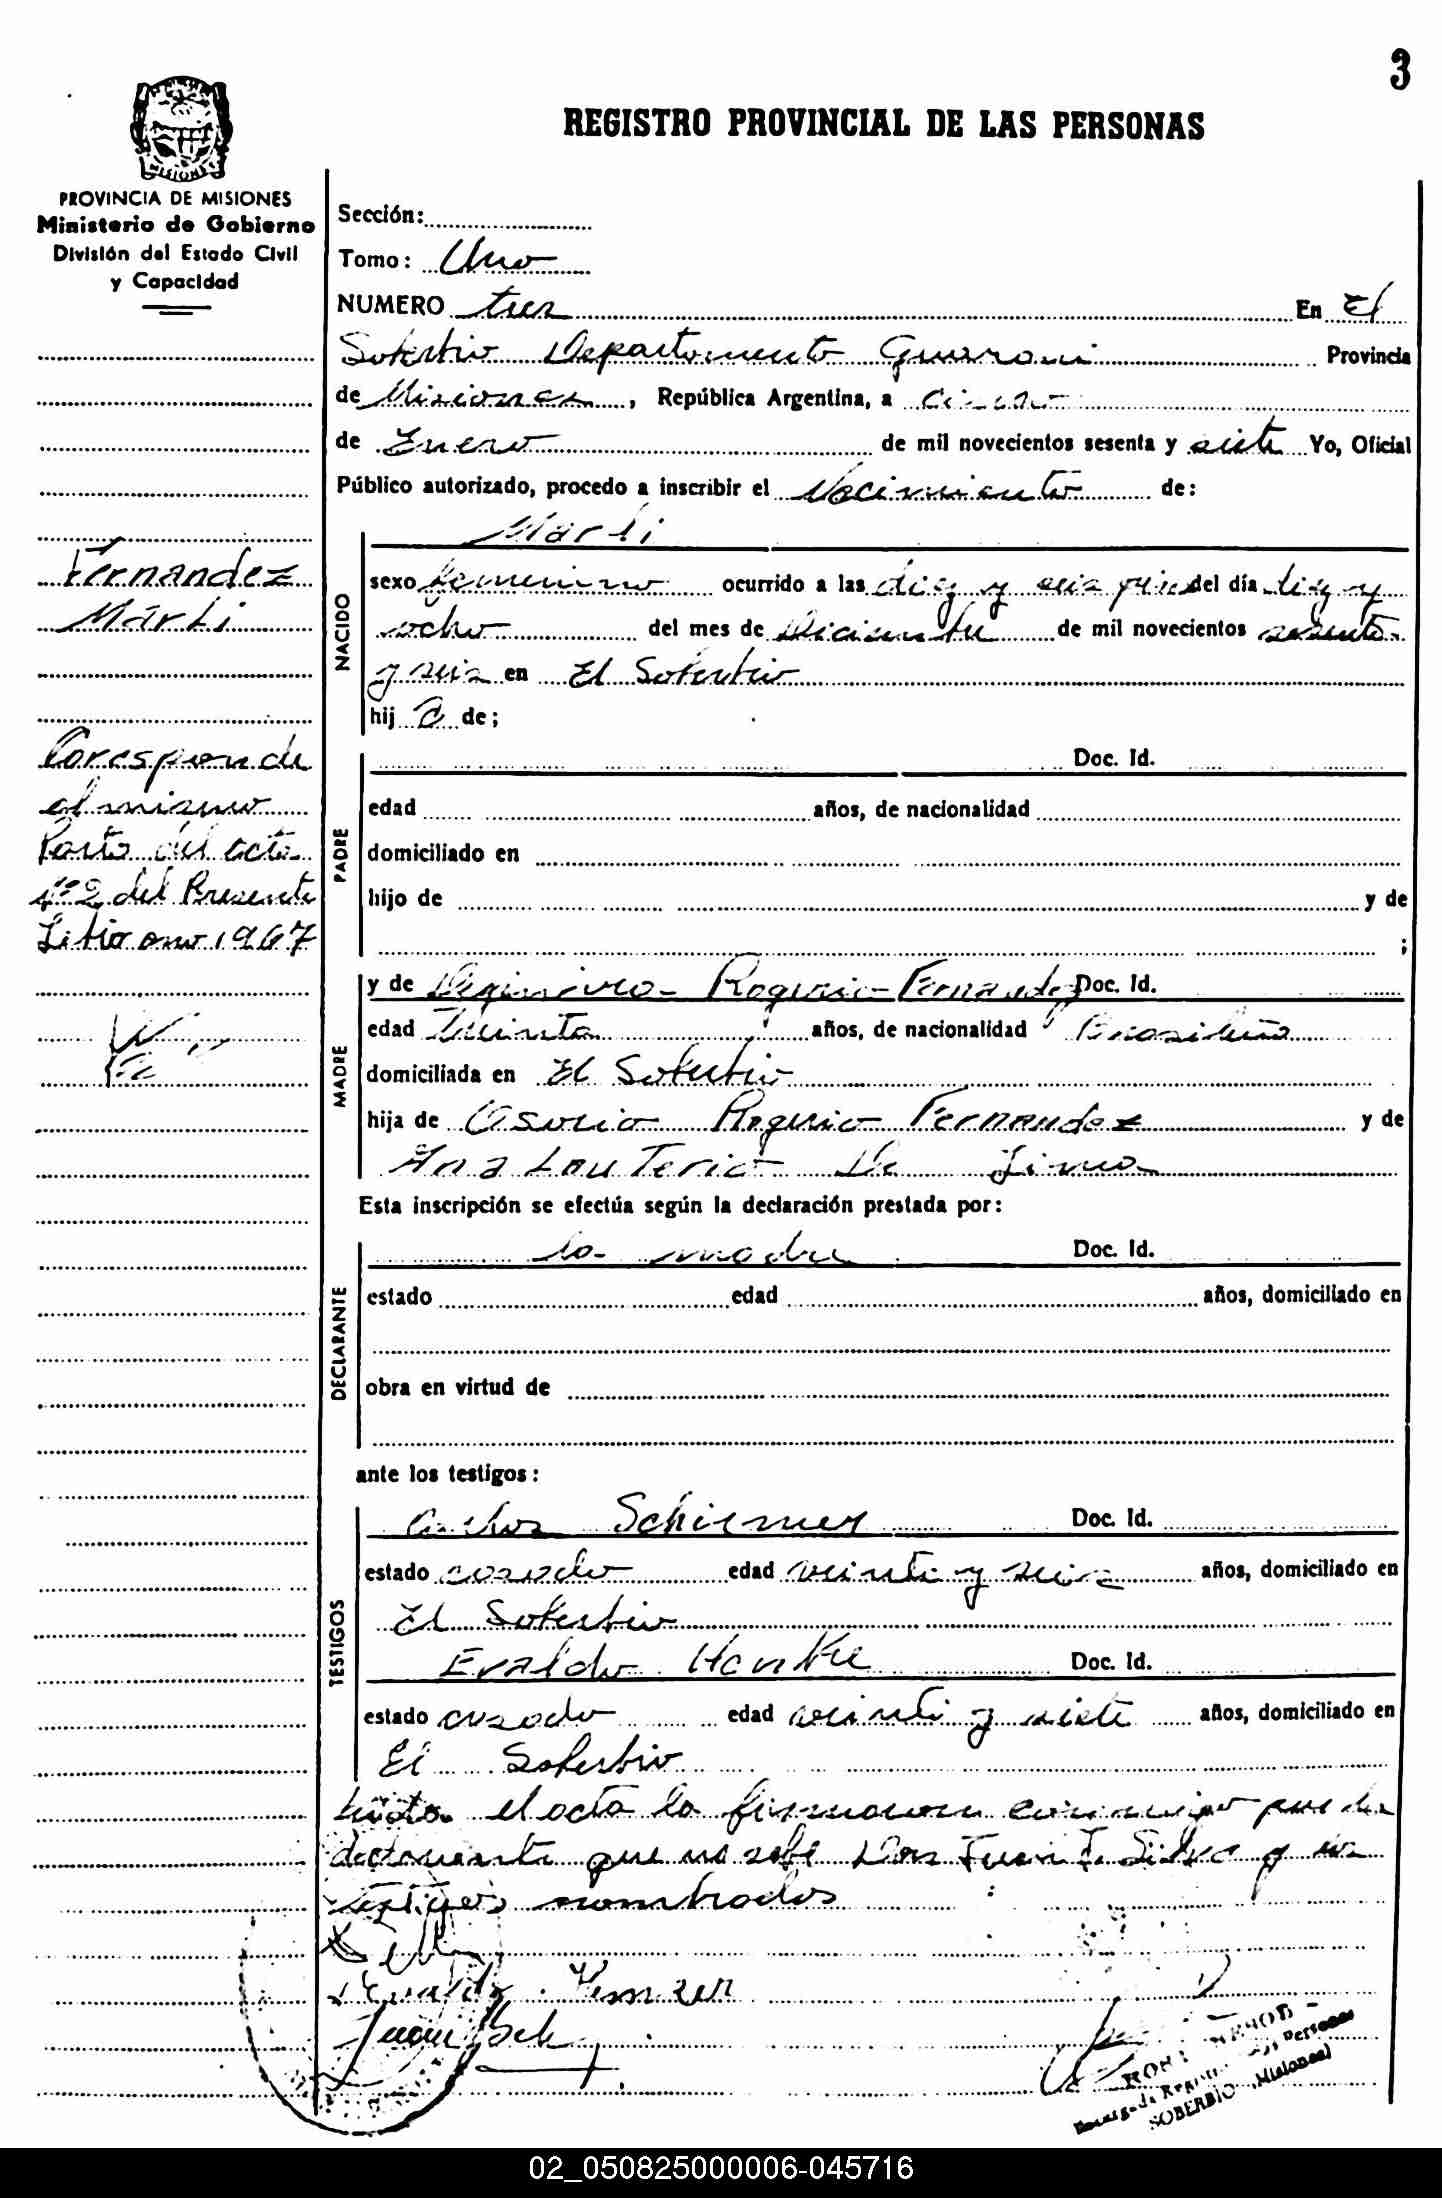 3
REGISTRO PROVINCIAL DE LAS PERSONAS
MISIONES
PROVINCIA DE MISIONES
Ministerio de Gobierno
División del Estado Civil
y Capacidad
Fernandez
Marli
Corresponde
al mismo
Parto del acta
Nº 2 del Presente
Libro ano 1967
Sección:
Tomo: Uno
NUMERO tres En El
Soberbio Departamento Guarani Provincia
de Misiones, República Argentina, a cinco
de Enero de mil novecientos sesenta y siete Yo, Oficial
Público autorizado, procedo a inscribir el Nacimiento de:
NACIDO
Marli
sexo femenino ocurrido a las diez y seis del día diez y
ocho del mes de Diciembre de mil novecientos sesenta
y seis en El Soberbio
hij a de;
PADRE
Doc. Id.
edad años, de nacionalidad
domiciliado en
hijo de y de
;
MADRE
y de Rogerio Fernandez Doc. Id.
edad treinta años, de nacionalidad Brasileña
domiciliada en El Soberbio
hija de Rogerio Fernandez y de
Ana De Lima
Esta inscripción se efectúa según la declaración prestada por:
DECLARANTE
la madre Doc. Id.
estado edad años, domiciliado en
obra en virtud de
ante los testigos:
TESTIGOS
Carlos Schirmer Doc. Id.
estado casado edad veinti y seis años, domiciliado en
El Soberbio
Evaldo Doc. Id.
estado casado edad veinti y siete años, domiciliado en
El Soberbio
el acta la firmaron conmigo por la
declarante que no sabe Don Juan Silva y los
testigos nombrados
SOBERBIO (Misiones)
02_050825000006-045716